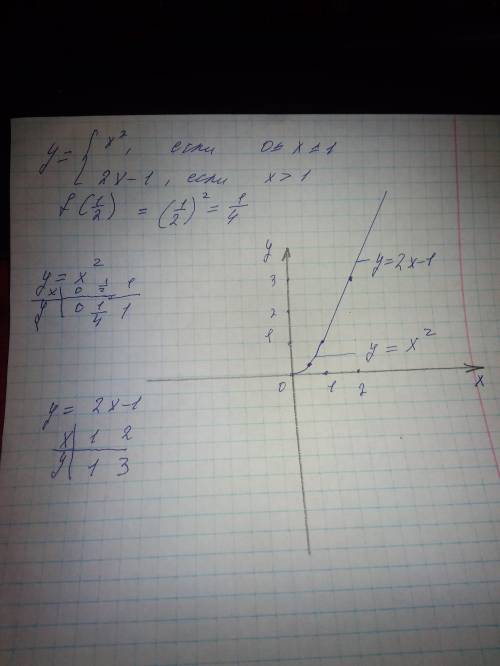 y = { x², если 0 ≤ x ≤ 1
2x-1, если x > 1
f(1/2) = (1/2)² = 1/4
y = x²
x | 0 1/2 1
y | 0 1/4 1
y = 2x-1
x | 1 2
y | 1 3
y
y=2x-1
3
2
1
y = x²
0 1 2 x